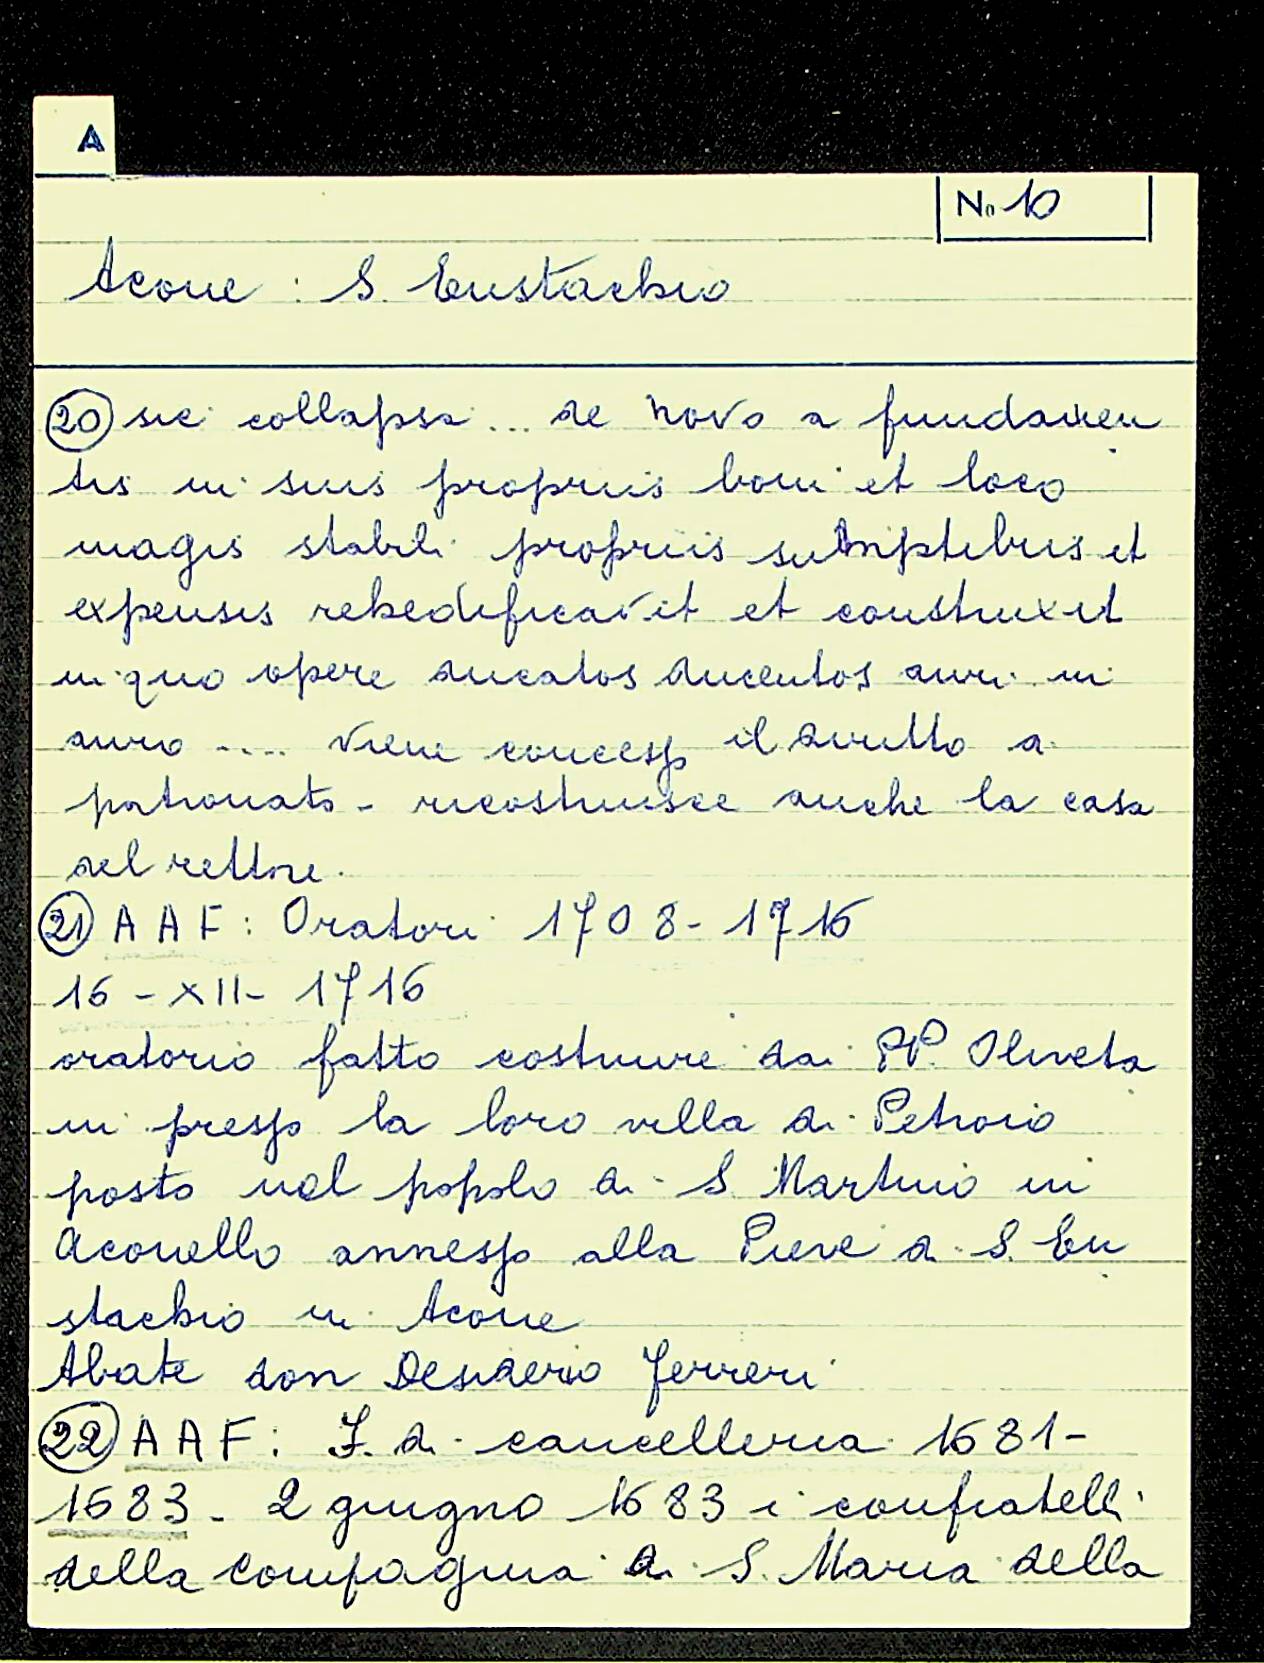 A
No 10
Acone : S. Eustachio
20 sic collapsa ... de novo a fundamen
tis in suis propriis boni et loco
magis stabili propriis sumptibus et
expensis rehedificavit et construxit
in quo opere ducatos ducentos auri in
auro .... viene concesso il diritto di
patronato - ricostruisce anche la casa
del rettore.
21 A A F : Oratori 1708 - 1716
16 - XII - 1716
oratorio fatto costruire dai PP. Oliveta
ni presso la loro villa di Petroio
posto nel popolo di S. Martino in
Aconello annesso alla Pieve di S. Eu
stachio in Acone
Abate don Desiderio Ferreri
22 A A F : F. di cancelleria 1681-
1683 - 2 giugno 1683 i confratelli
della compagnia di S. Maria della